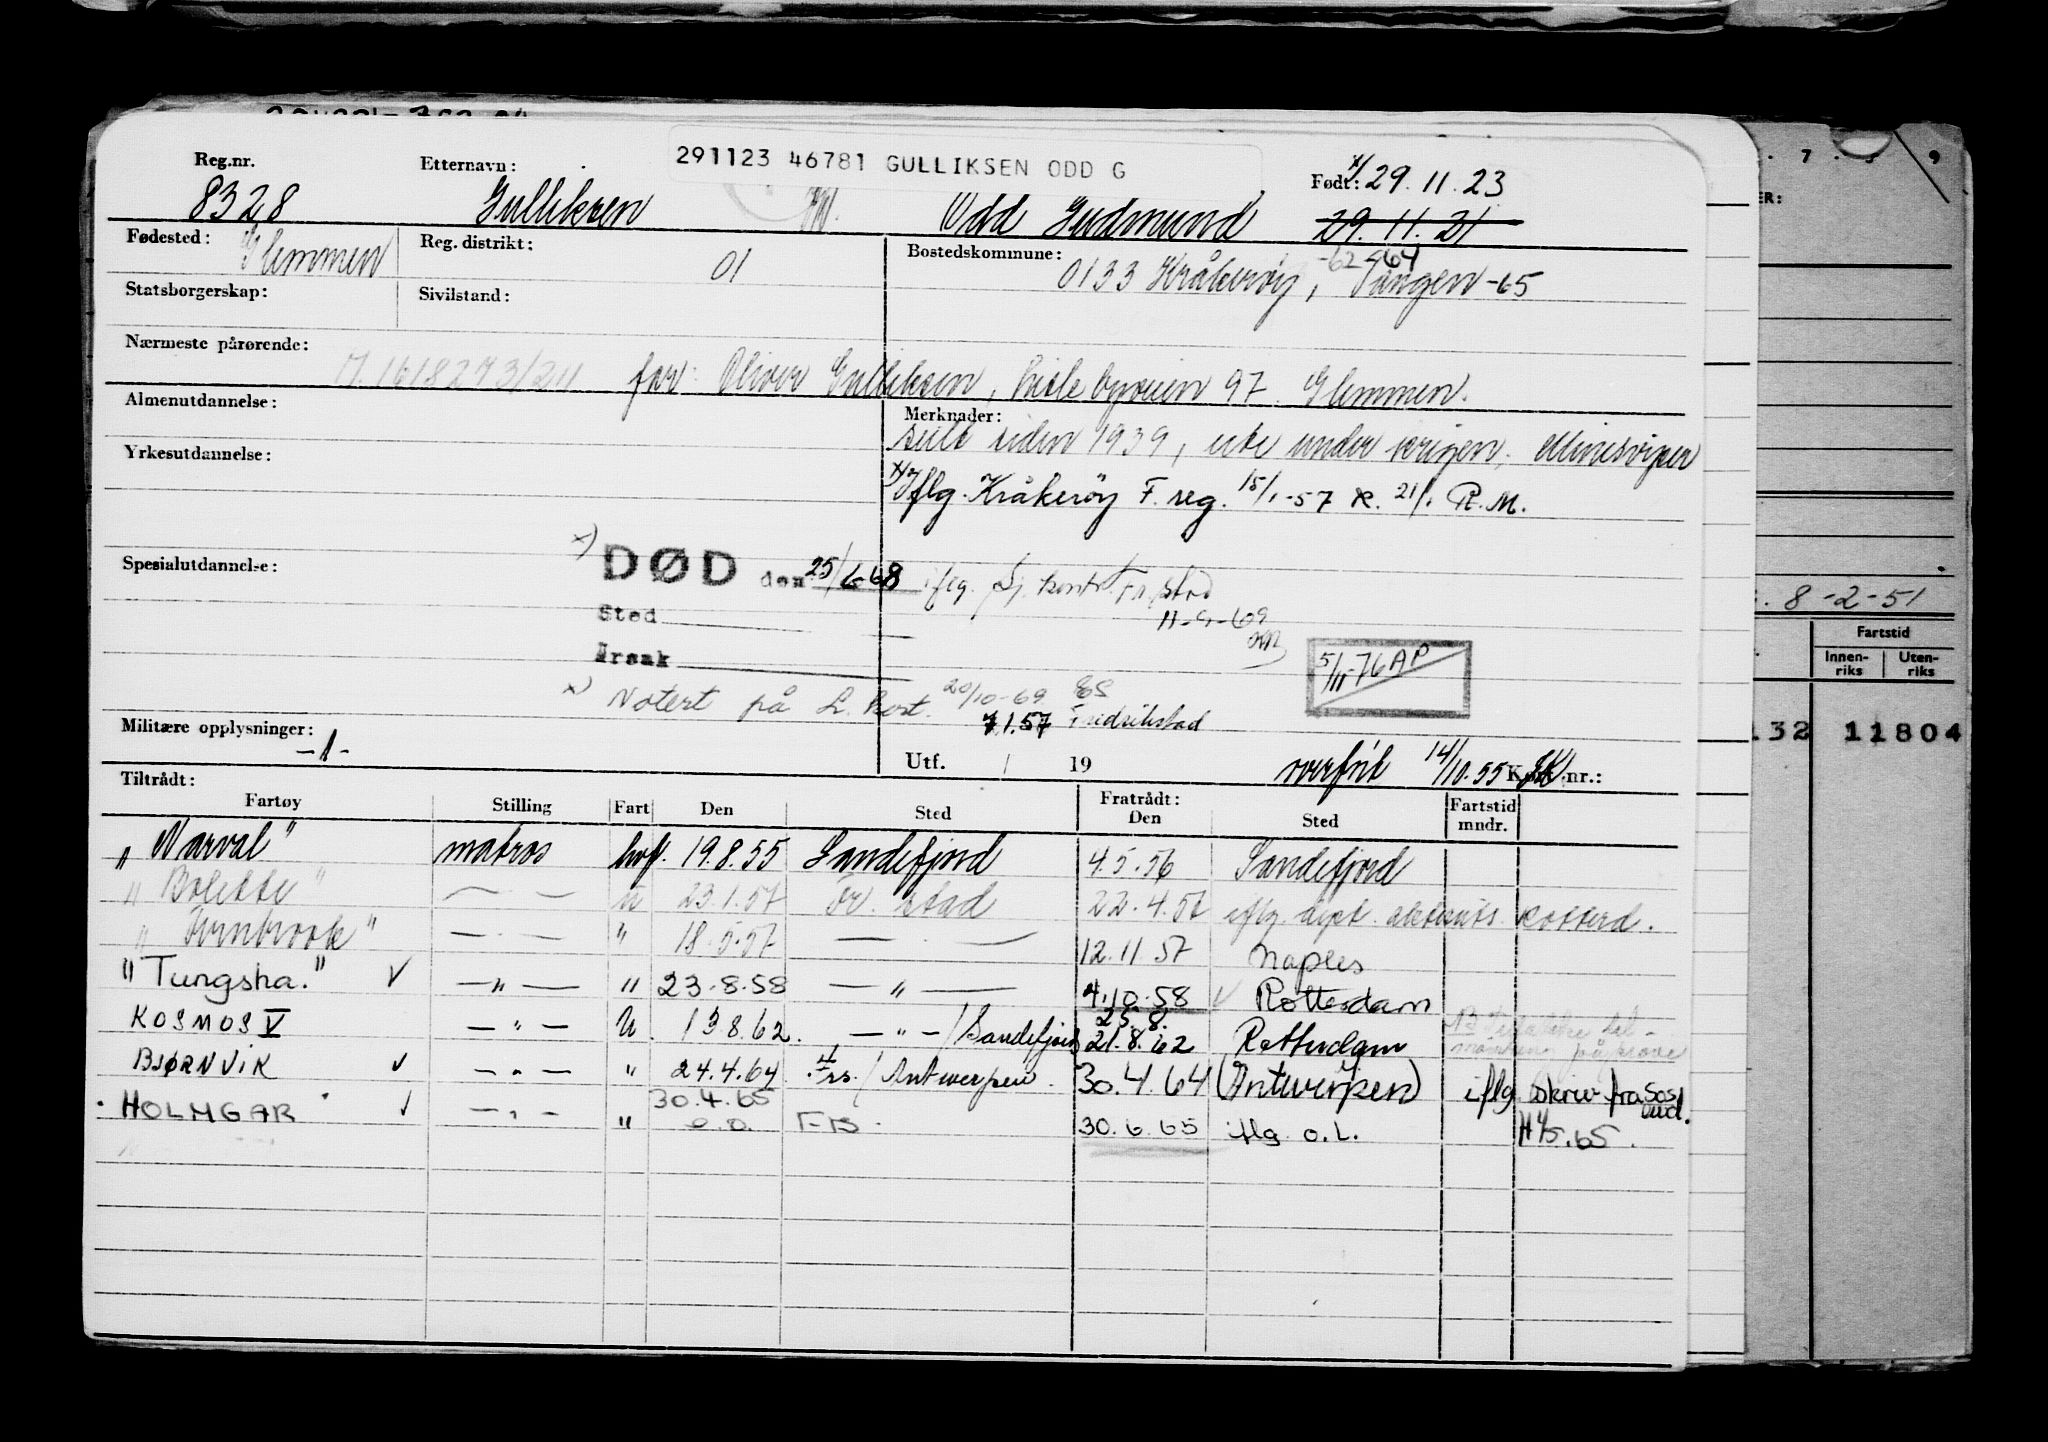 Reg.nr. Etternavn: 291123 46781 GULLIKSEN ODD G Født: x/ 29.11.23
8328 Gulliksen Odd Gudmund 29.11.21
Fødested: Glemmen Reg. distrikt: 01 Bostedskommune: 0133 Kråkerøy, -62 -64 Tangen -65
Statsborgerskap: Sivilstand:
Nærmeste pårørende: far: Oliver Gulliksen, 97 Glemmen.
Almenutdannelse: Merknader:
seilt siden 1939, ikke under krigen. Minesviper
Yrkesutdannelse:
x) Iflg. Kråkerøy F. reg. 15/1-57 R. 21/1 R.M.
Spesialutdannelse: x) DØD den 25/6-68 iflg. Sj. kontr. Fr.stad
Sted 11-9-69
Årsak 5/11-76 AP
x) Notert på L. kort. 20/10-69 ES
7.1.57 Fredrikstad
Militære opplysninger: -1-
Utf. / 19 overført 14/10.55 Kort nr.:
Tiltrådt: Fratrådt:
Fartøy Stilling Fart Den Sted Den Sted Fartstid mndr.
"Narval" matros hvf. 19.8.55 Sandefjord 4.5.56 Sandefjord
"Bolette" — " — U 23.1.57 Fr.stad 22.4.57 iflg. dept. Rotterd.
"Fernbrook" — " — " 18.5.57 — " — 12.11.57 Naples
"Tungsha." ✓ — " — " 23.8.58 — " — 4.10.58 ✓ Rotterdam
KOSMOS V — " — U. 13.8.62. — " — / Sandefjord 25.8. 21.8.62 Rotterdam
BJØRNVIK ✓ — " — " 24.4.64 / Antwerpen. 30.4.64 (Antwerpen) iflg skriv fra
HOLMGAR ✓ — " — " 30.4.65 e.o. F-IS. 30.6.65 iflg o.L. H 4/5.65.
. 8-2-51
Fartstid
Innen-riks Uten-riks
132 11804